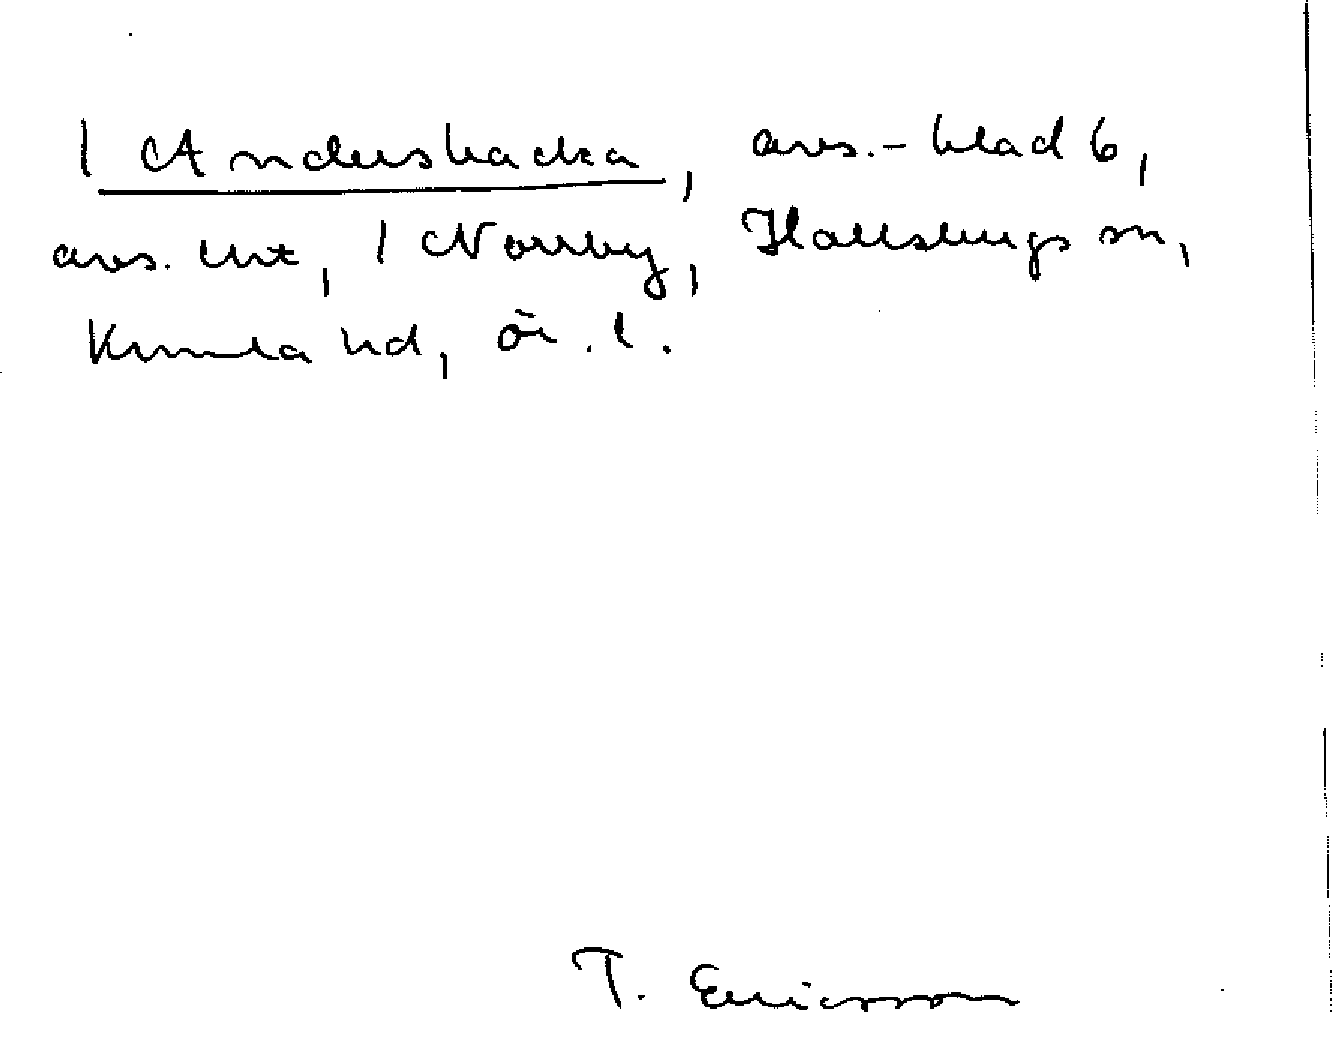 | Andersbacka, avs.-blad 6,
avs. , | Norrby, Hallsbergs sn,
Kumla hd, Ör. l.
T. Ericsson